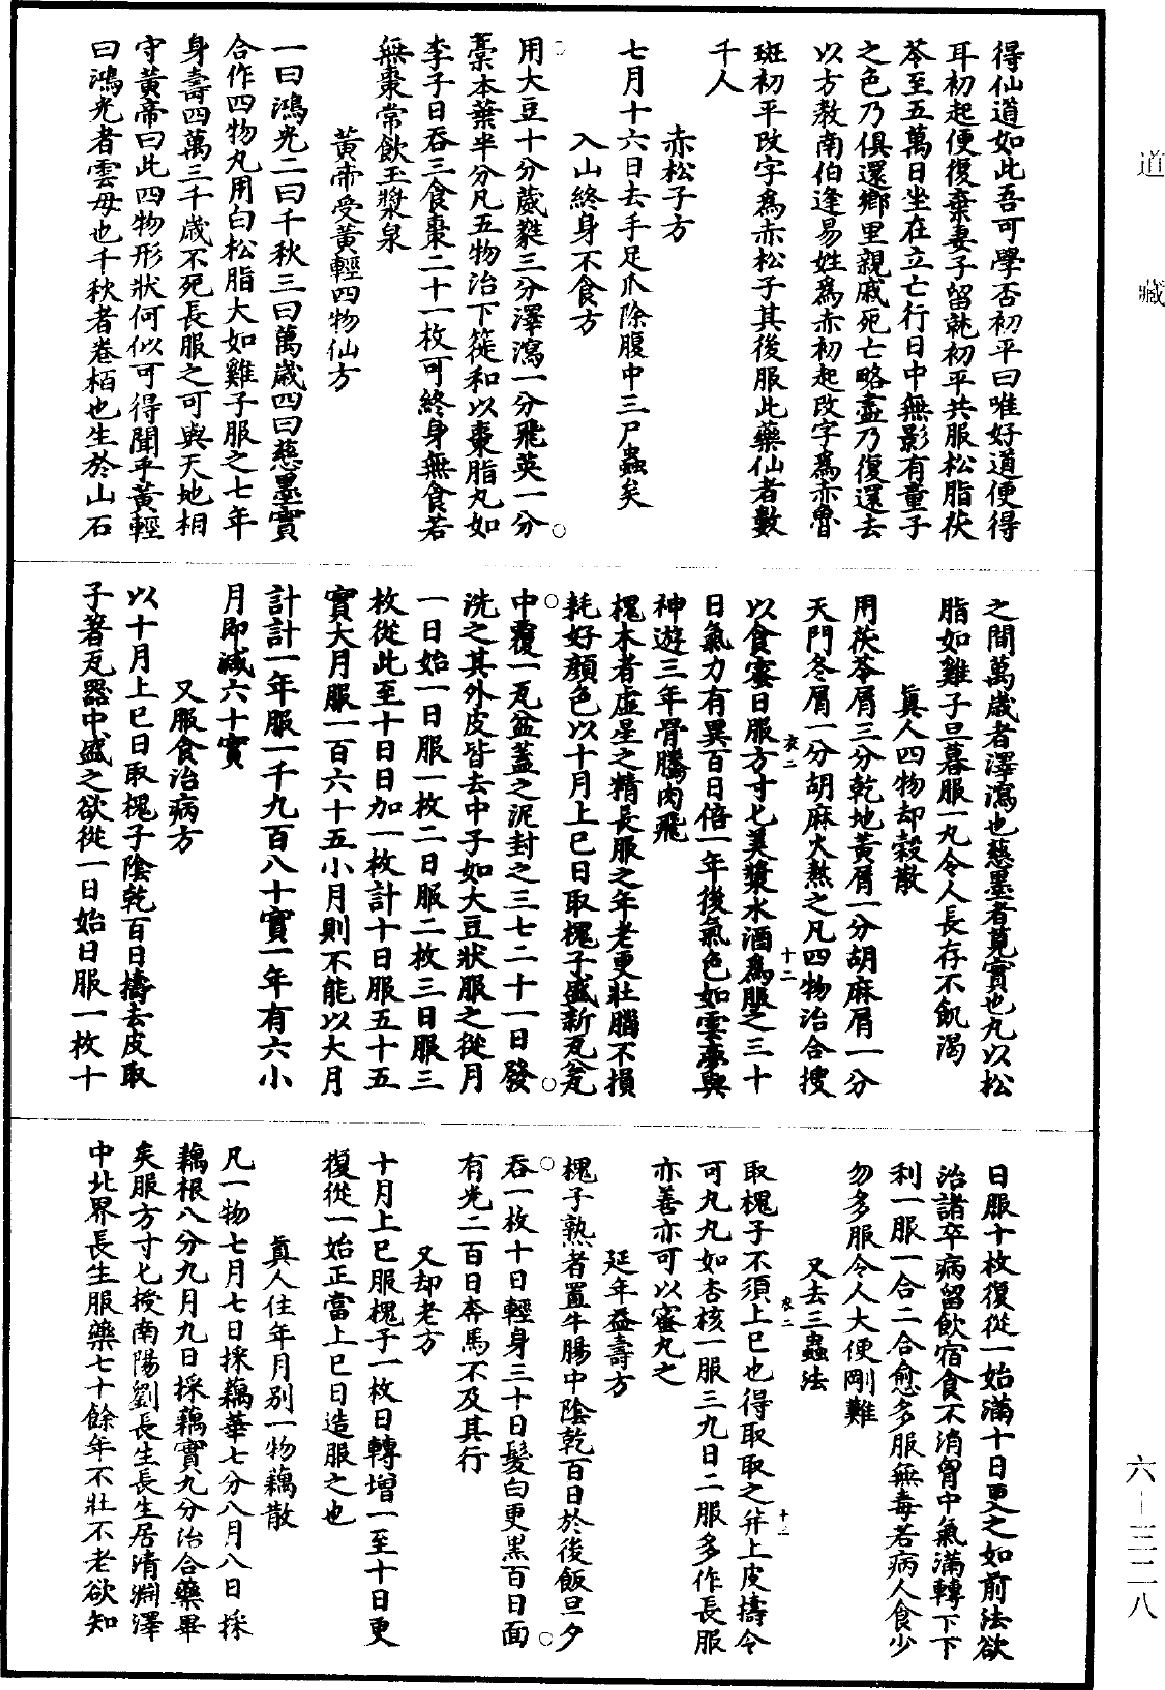 道藏
得仙道如此吾可學否初平曰唯好道便得
耳初起便復棄妻子留就初平共服松脂茯
苓至五萬日坐在立亡行日中無影有童子
之色乃俱還鄉里親戚死亡略盡乃復還去
以方教南伯逢易姓為赤初起改字為赤魯
班初平改字為赤松子其後服此藥仙者數
千人
赤松子方
七月十六日去手足爪除腹中三尸蟲矣
入山終身不食方
用大豆十分葳蕤三分澤瀉一分飛英一分
藁本葉半分凡五物治下簁和以棗脂丸如
李子日吞三食棗二十一枚可終身無食若
無棗常飲玉漿泉
黃帝受黃輕四物仙方
一曰鴻光二曰千秋三曰萬歲四曰慈墨實
合作四物丸用白松脂大如雞子服之七年
身壽四萬三千歲不死長服之可與天地相
守黃帝曰此四物形狀何似可得聞乎黃輕
曰鴻光者雲母也千秋者卷栢也生於山石
之間萬歲者澤瀉也慈墨者莧實也丸以松
脂如雞子旦暮服一丸令人長存不飢渴
眞人四物却穀散
用茯苓屑三分乾地黃屑一分胡麻屑一分
天門冬屑一分胡麻火熬之凡四物治合搜
以食蜜日服方寸匕美漿水酒為服之三十
日氣力有異百日倍一年後氣色如雲與
神遊三年骨騰肉飛
槐木者虛星之精長服之年老更壯腦不損
耗好顏色以十月上巳日取槐子盛新瓦瓮
中覆一瓦盆蓋之泥封之三七二十一日發
洗之其外皮皆去中子如大豆狀服之從月
一日始一日服一枚二日服二枚三日服三
枚從此至十日日加一枚計十日服五十五
實大月服一百六十五小月則不能以大月
計計一年服一千九百八十實一年有六小
月即減六十實
又服食治病方
以十月上巳日取槐子陰乾百日擣去皮取
子著瓦器中盛之欲從一日始日服一枚十
日服十枚復從一始滿十日更之如前法欲
治諸卒病留飲宿食不消胷中氣滿轉下下
利一服一合二合愈多服無毒若病人食少
勿多服令人大便剛難
又去三蟲法
取槐子不須上巳也得取取之幷上皮擣令
可丸丸如杏核一服三九日二服多作長服
亦善亦可以蜜丸之
延年益壽方
槐子熟者置牛腸中陰乾百日於後飯旦夕
吞一枚十日輕身三十日髮白更黑百日面
有光二百日奔馬不及其行
又却老方
十月上巳服槐子一枚日轉增一至十日更
復從一始正當上巳日造服之也
眞人住年月別一物藕散
凡一物七月七日採藕華七分八月八日採
藕根八分九月九日採藕實九分治合藥畢
矣服方寸匕授南陽劉長生長生居清淵澤
中北界長生服藥七十餘年不壯不老欲知
衣二
十二
衣二
十三
六—三二八